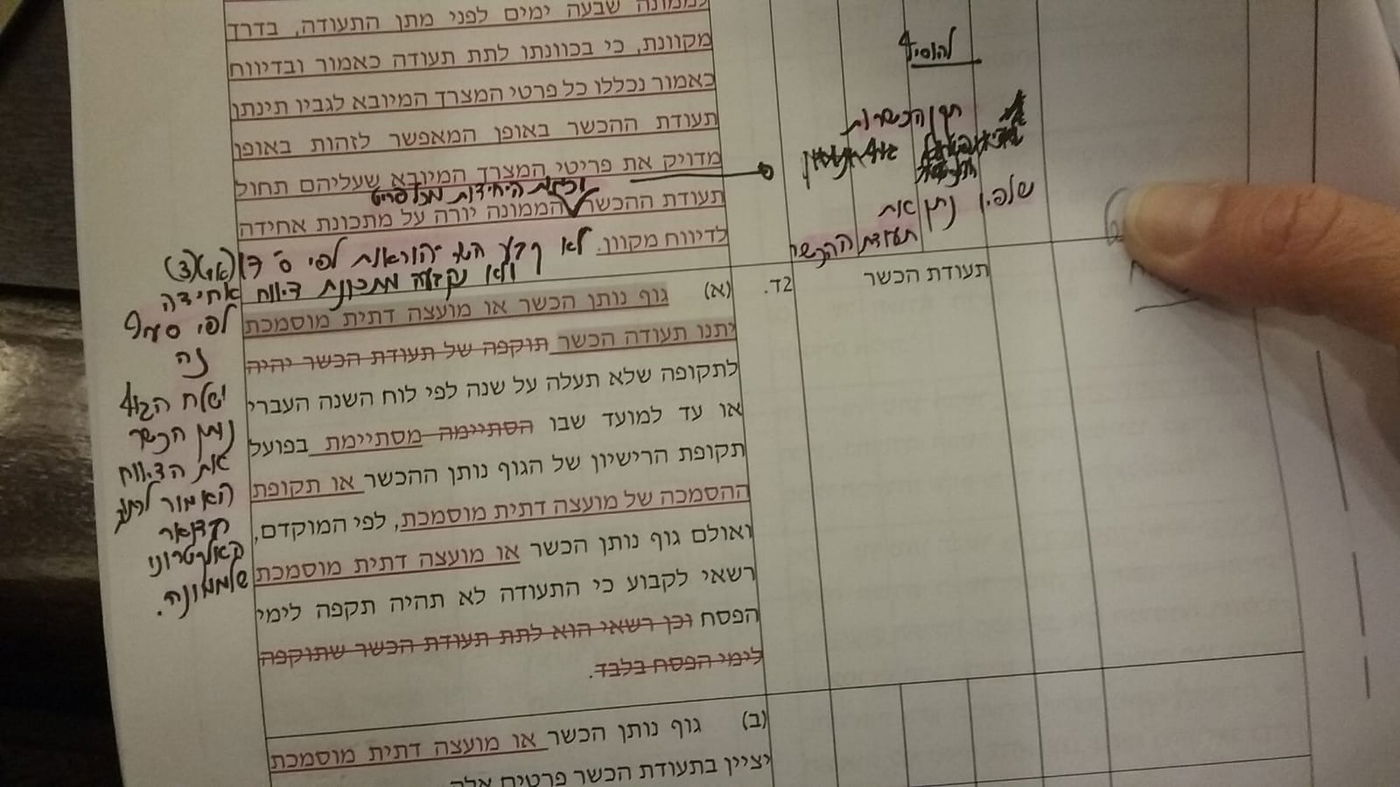 לממונה שבעה ימים לפני מתן התעודה, בדרך
מקוונת, כי בכוונתו לתת תעודה כאמור ובדיווח
כאמור נכללו כל פרטי המצרך המיובא לגביו תינתן
תעודת ההכשר באופן המאפשר לזהות באופן
מדויק את פריטי המצרך המיובא שעליהם תחול
היחידות מכל פריט
תעודת ההכשר הממונה יורה על מתכונת אחידה
לדיווח מקוון.
לא קבע השר הוראות לפי ס'
ולא נקבעה מתכונת דיווח אחידה
לפי סעיף
זה
ישלח הגוף
נותן הכשר
את הדיווח
האמור
בדואר
אלקטרוני
לממונה.
להוסיף
תקן הכשרות
שלפיו נתן את
תעודת ההכשר
תעודת הכשר
2ד.
(א) גוף נותן הכשר או מועצה דתית מוסמכת
יתנו תעודה הכשר תוקפה של תעודת הכשר יהיה
לתקופה שלא תעלה על שנה לפי לוח השנה העברי
או עד למועד שבו הסתיימה מסתיימת בפועל
תקופת הרישיון של הגוף נותן ההכשר או תקופת
ההסמכה של מועצה דתית מוסמכת, לפי המוקדם,
ואולם גוף נותן הכשר או מועצה דתית מוסמכת
רשאי לקבוע כי התעודה לא תהיה תקפה לימי
הפסח וכן רשאי הוא לתת תעודת הכשר שתוקפה
לימי הפסח בלבד.
(ב) גוף נותן הכשר או מועצה דתית מוסמכת
יציין בתעודת הכשר פרטים אלה